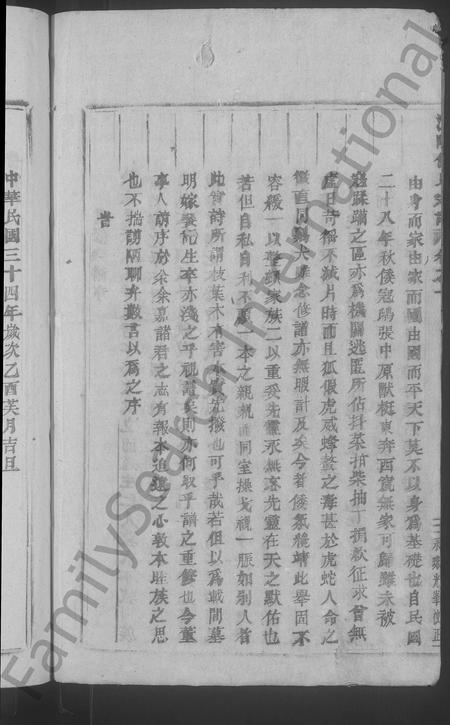 由身而家由家而國由國而平天下莫不以身爲基礎也自民國
二十八年秋倭寇鴟張中原獸挺東奔西竄無家可歸雖未被
寇蹂躪之區亦爲機關逃匿所佔拝菜拍柴抽丁捐款征求曾無
虛日苛徭不減片時而且狐假虎威蜂螫之毒甚於虎蛇人命之
賤直同鷄犬雖念修譜亦無暇計及矣今者倭氛穐靖此舉固不
容緩一以華顏家族二以重妥先靈永無忝先靈在天之默佑也
若但自私自利不顧一本之親親而同室操戈視一脹如別人者
此實詩所謂枝葉未有害本實先撥也可乎哉若但以爲載問墓
明嫁娶紀生卒亦淺之乎視譜矣則亦何取乎譜之重修也今董
事人萠序於余余嘉諸君之志有報本追遠之心敦本睦族之思
也不揣謭陋聊弁數言以爲之序
旹
中華民國三十四年歲次乙酉
月吉旦
FamilySearch International